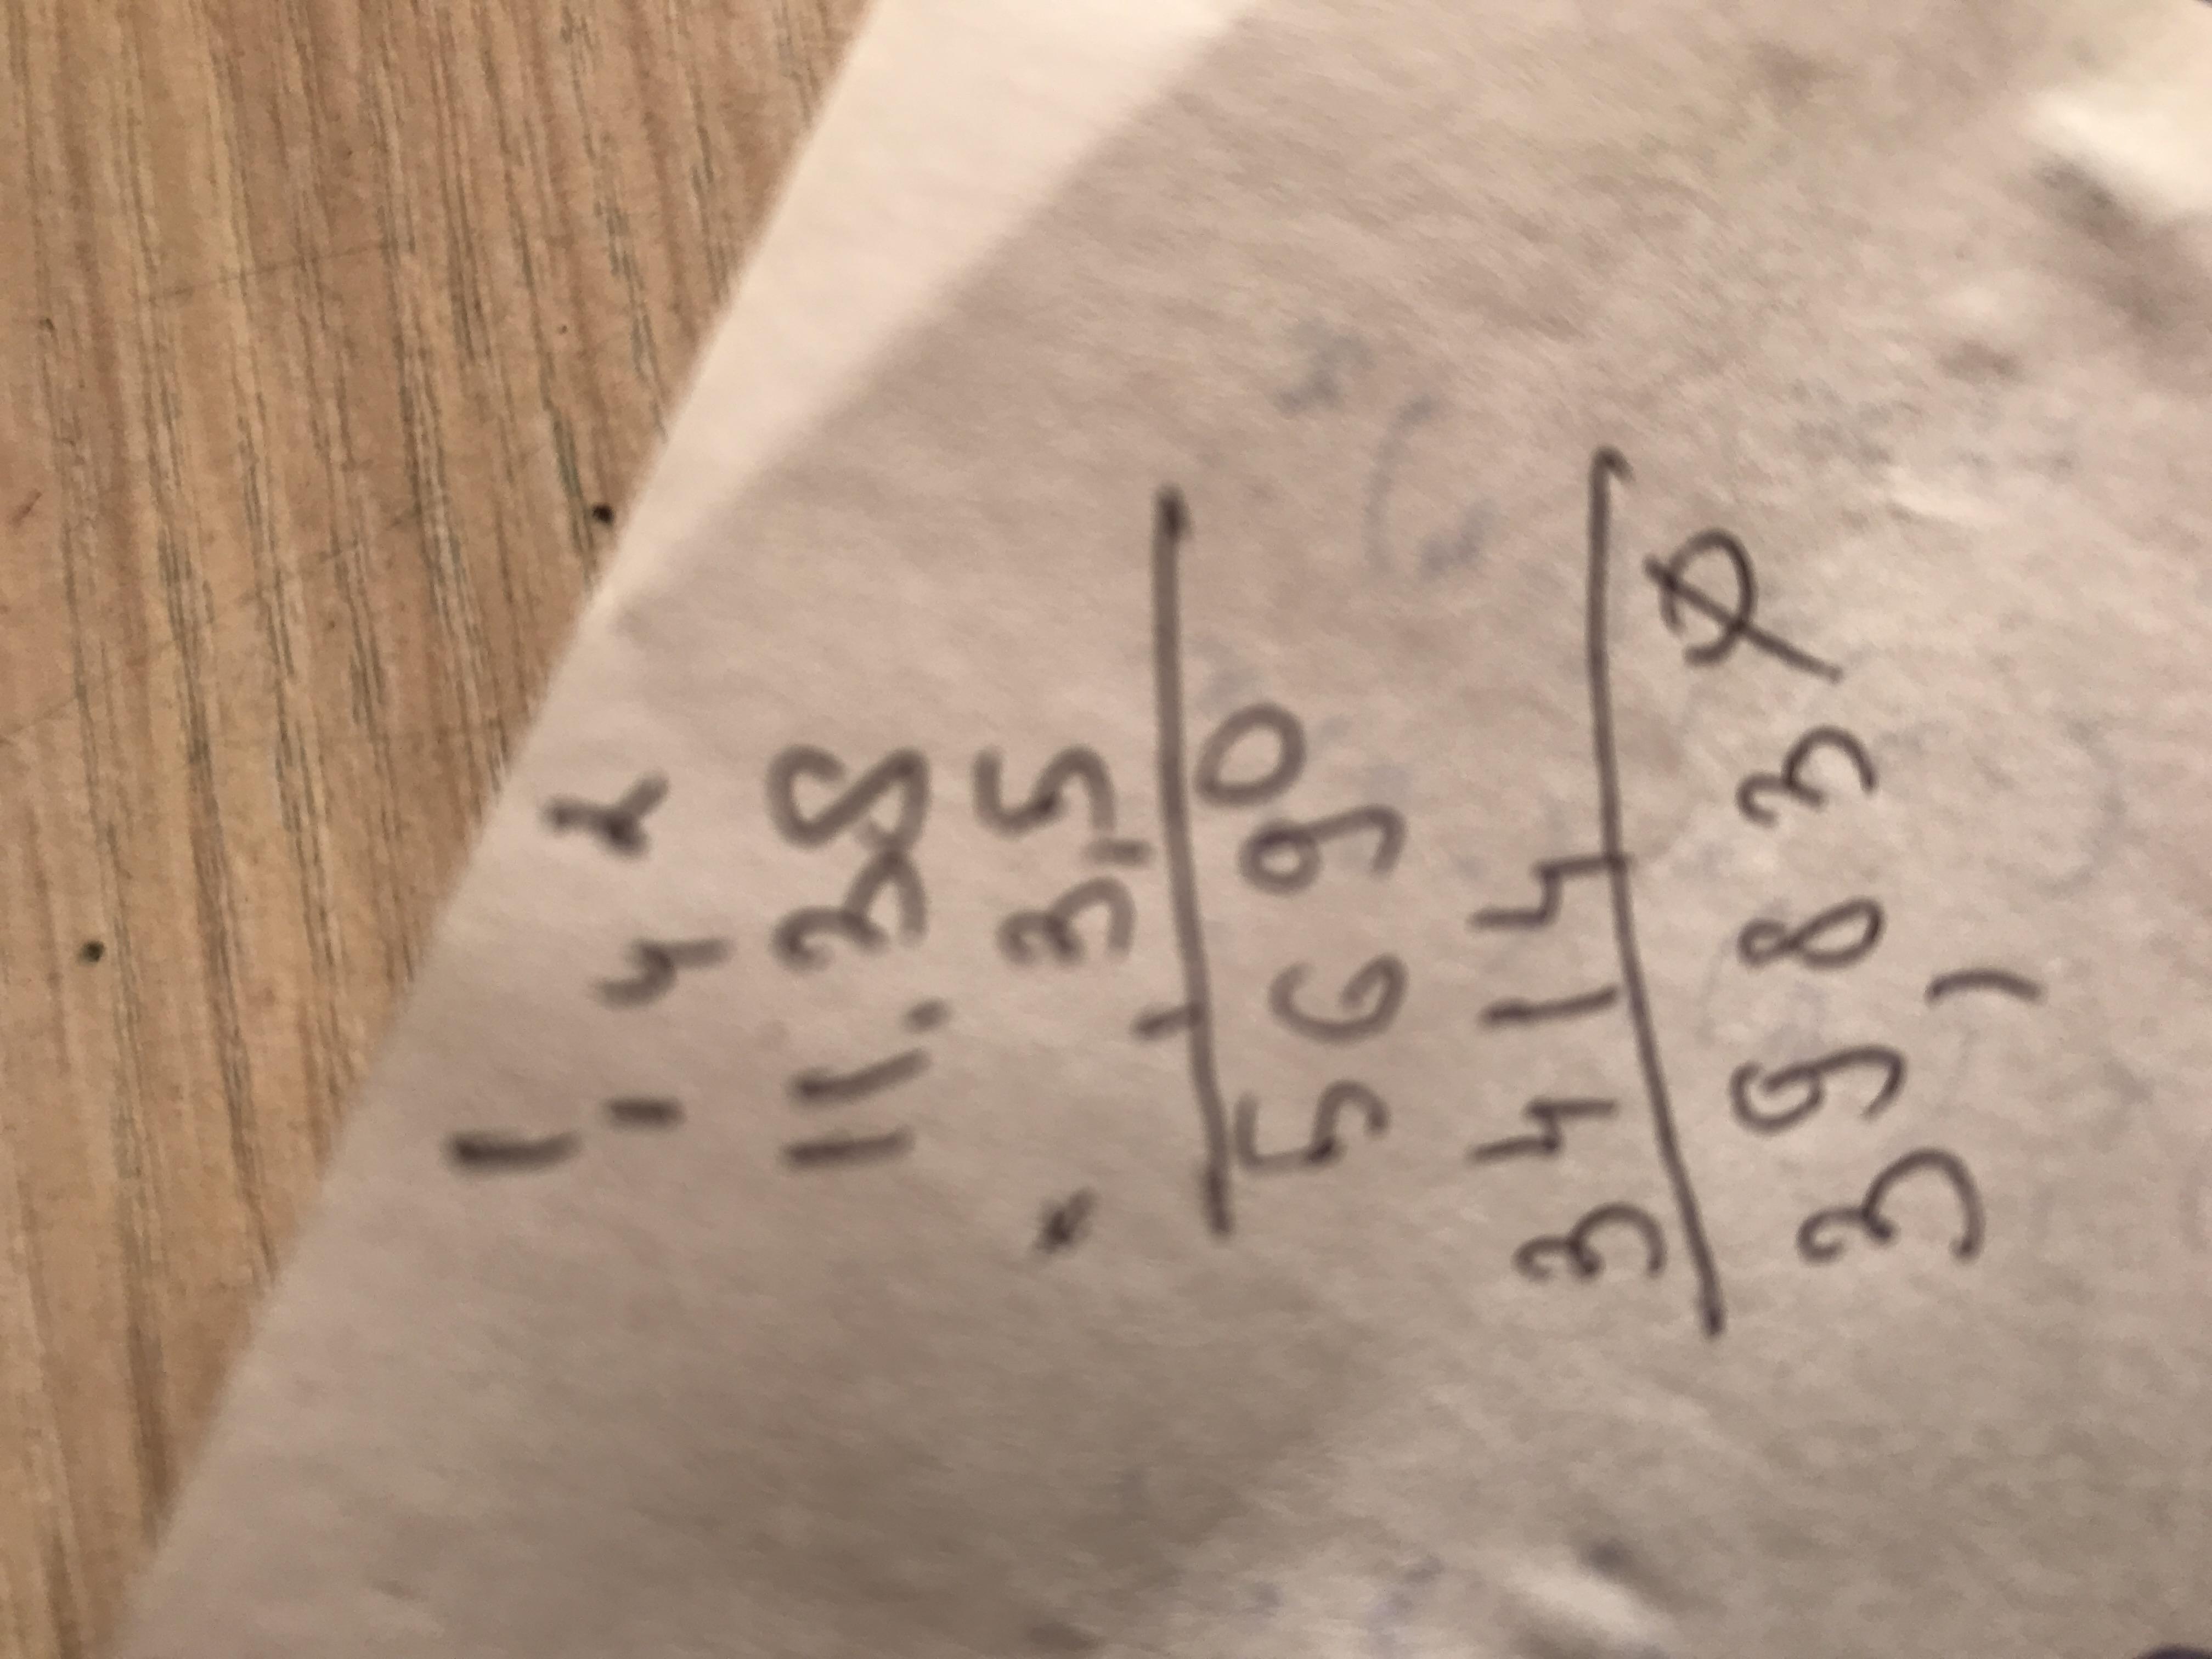 1
1 4 2
11.38
× 3,5
1
5690
3414
39,830